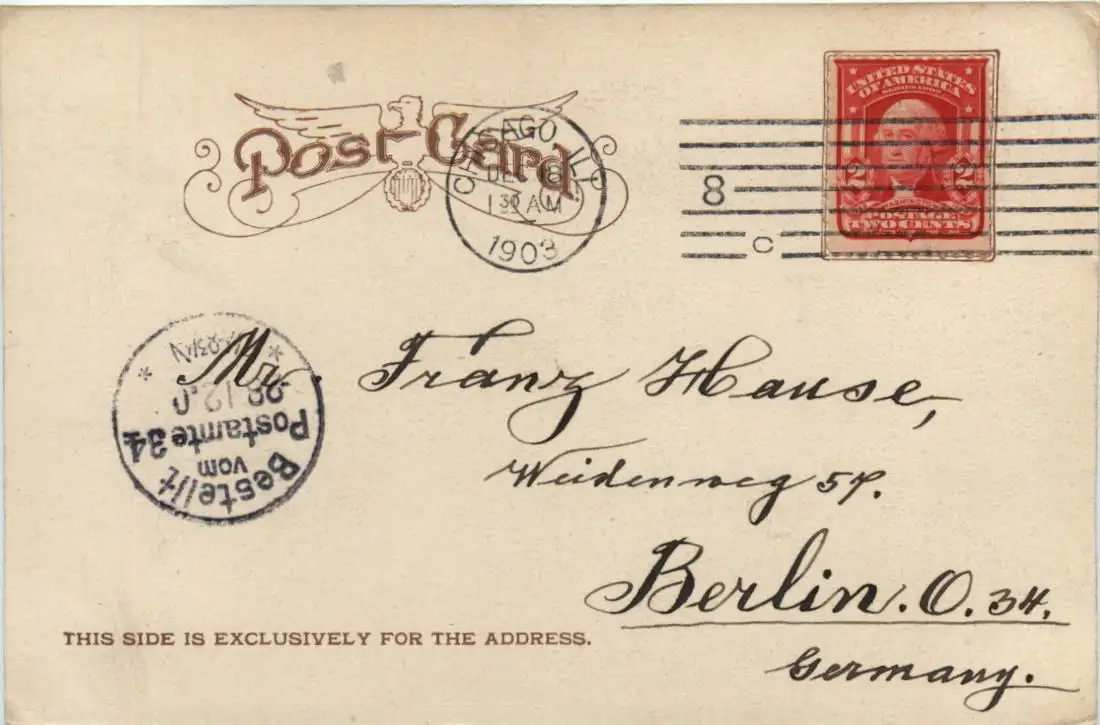 Post Card
CHICAGO, ILL.
DE 18
1 30 AM
1903
8
C
UNITED STATES
OF AMERICA
SERIES 1902
2 2
WASHINGTON
POSTAGE
TWO CENTS
Mr. Franz Hause,
Weidenweg 57.
Berlin. O. 34.
Germany.
Bestellt
vom
Postamte 34
THIS SIDE IS EXCLUSIVELY FOR THE ADDRESS.